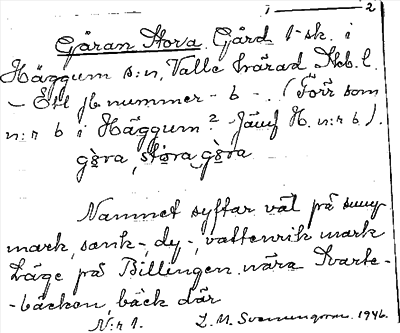 1 — 2
Göran Stora. Gård 1 sk. i
Häggum s:n, Valle härad Skb. l.
– Ett jb nummer – 6 – . (Förr som
n:r 6 i Häggum? Jämf H. n:r 6).
göra, stora göra
Namnet syftar väl på sump
mark, sank-, dy-, vattenrik mark
Läge på Billingen nära Svarte-
-bäcken, bäck där
N:r 1. L. M. Svenungsson. 1946.